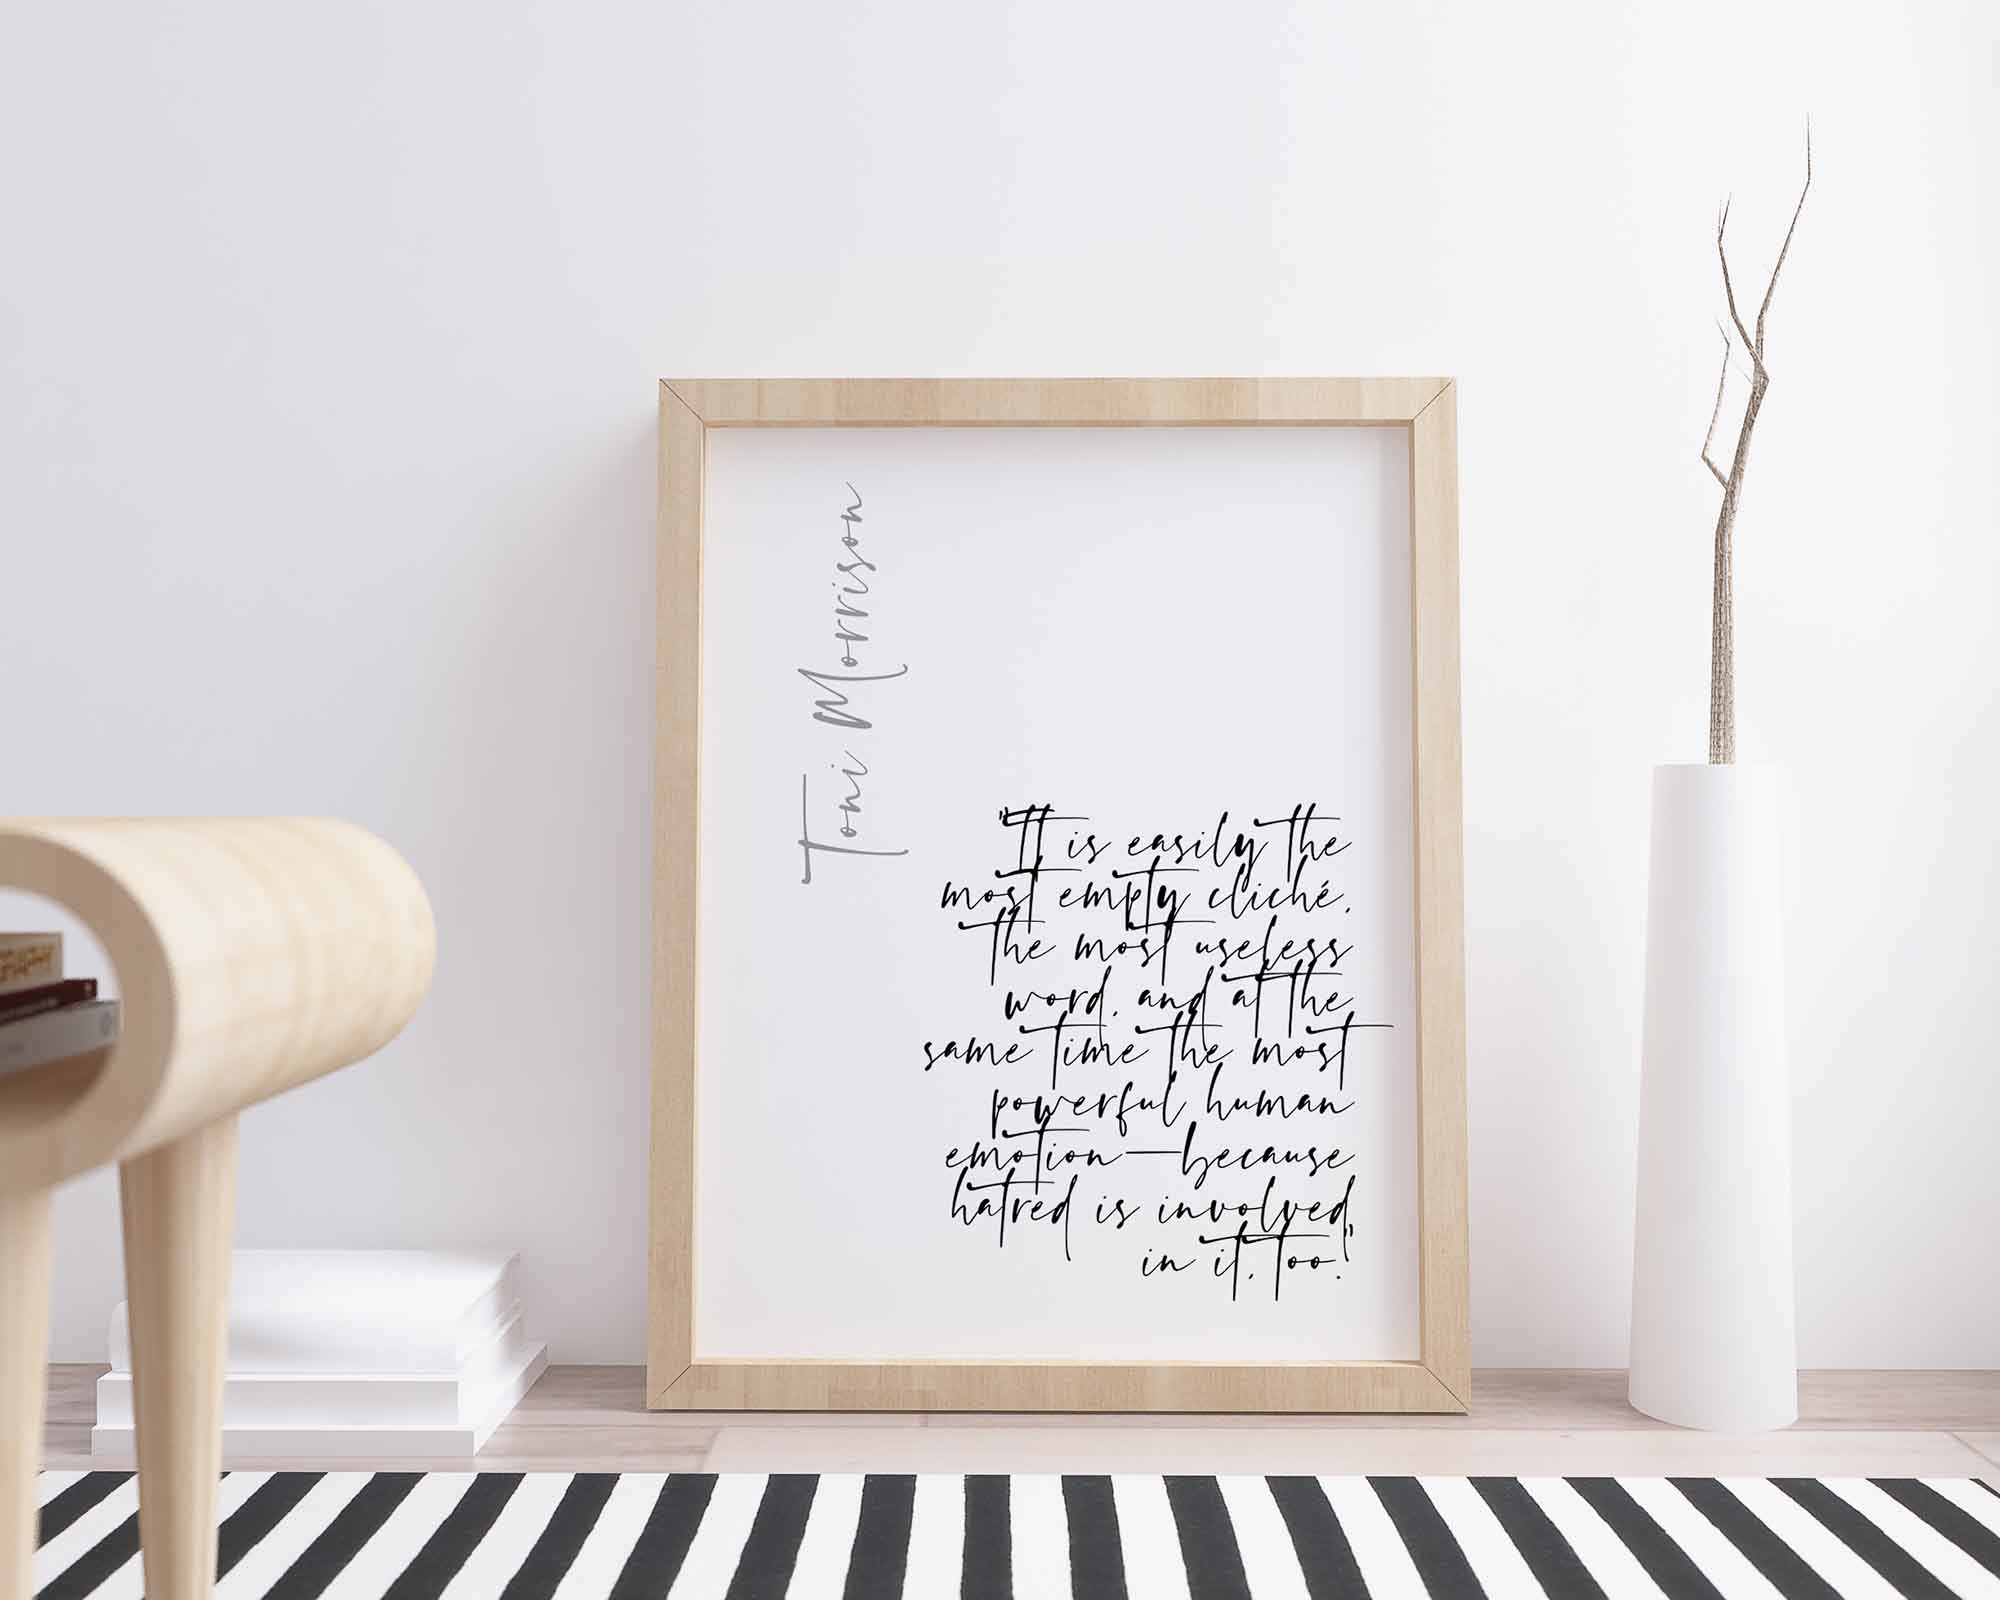 Toni Morrison
"It is easily the
most empty cliché,
the most useless
word, and at the
same time the most
powerful human
emotion—because
hatred is involved
in it, too."